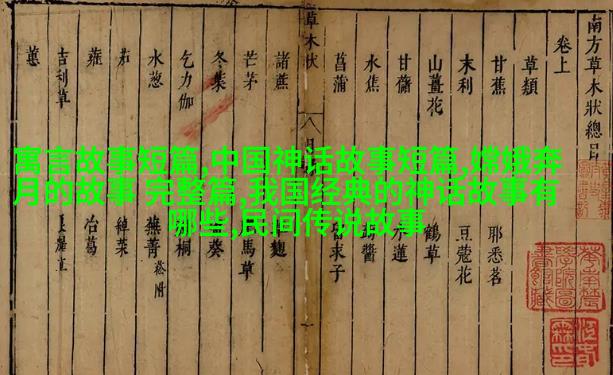 寓言故事短篇,中国神话故事短篇,嫦娥奔
月的故事 完整篇,我国经典的神话故事有
哪些,民间传说故事
南方草木狀總目
卷上
草類
甘蕉 耶悉茗
末利 豆蔻花
山薑花 鶴草
甘藷 蓮
水蕉 醬
菖蒲 求子
草木狀
諸蔗 麴
芒茅 馬草
冬葉 葵
乞力伽 桐
水葱 蕪菁 菘附
茄 綽菜
蕹 冶葛
吉利草
蕙